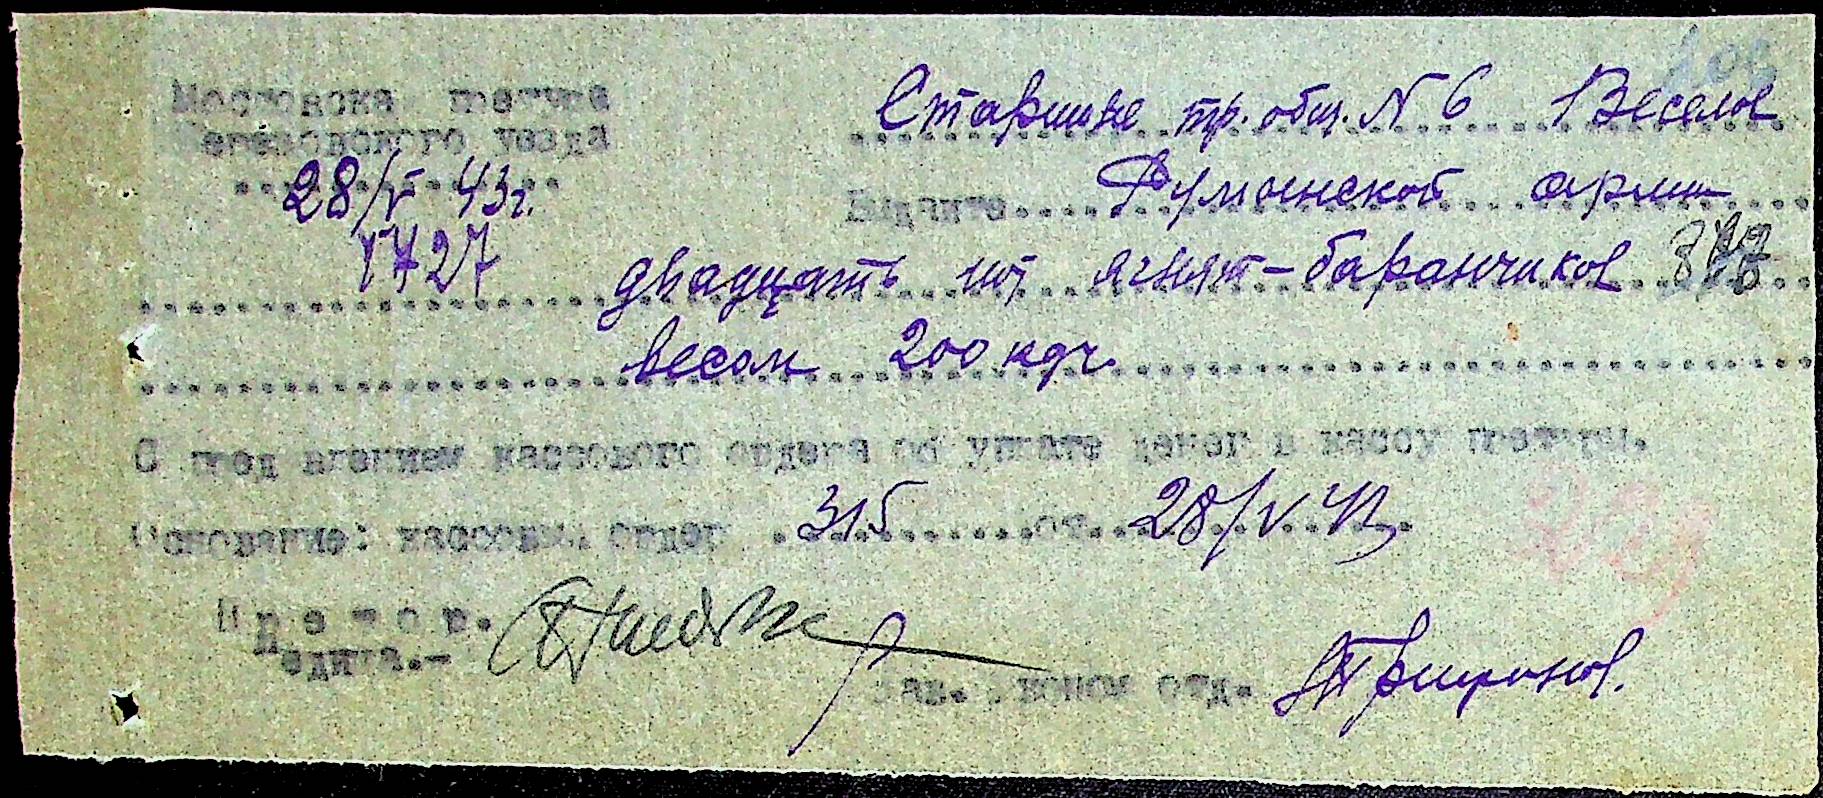 Мостовская претура
уезда
28/V 43г.
1727
Старшине тр. общ. N 6 Веселов
Выдайте Румынской армии
двадцать шт ягнят-баранчиков
весом 200 кгр.
С пред влением кассового ордера об уплате денег в кассу претуры.
Основание: кассовый ордер 315 от 28/V 43
Претор.
Зав. .эконом отд. Трифонов.